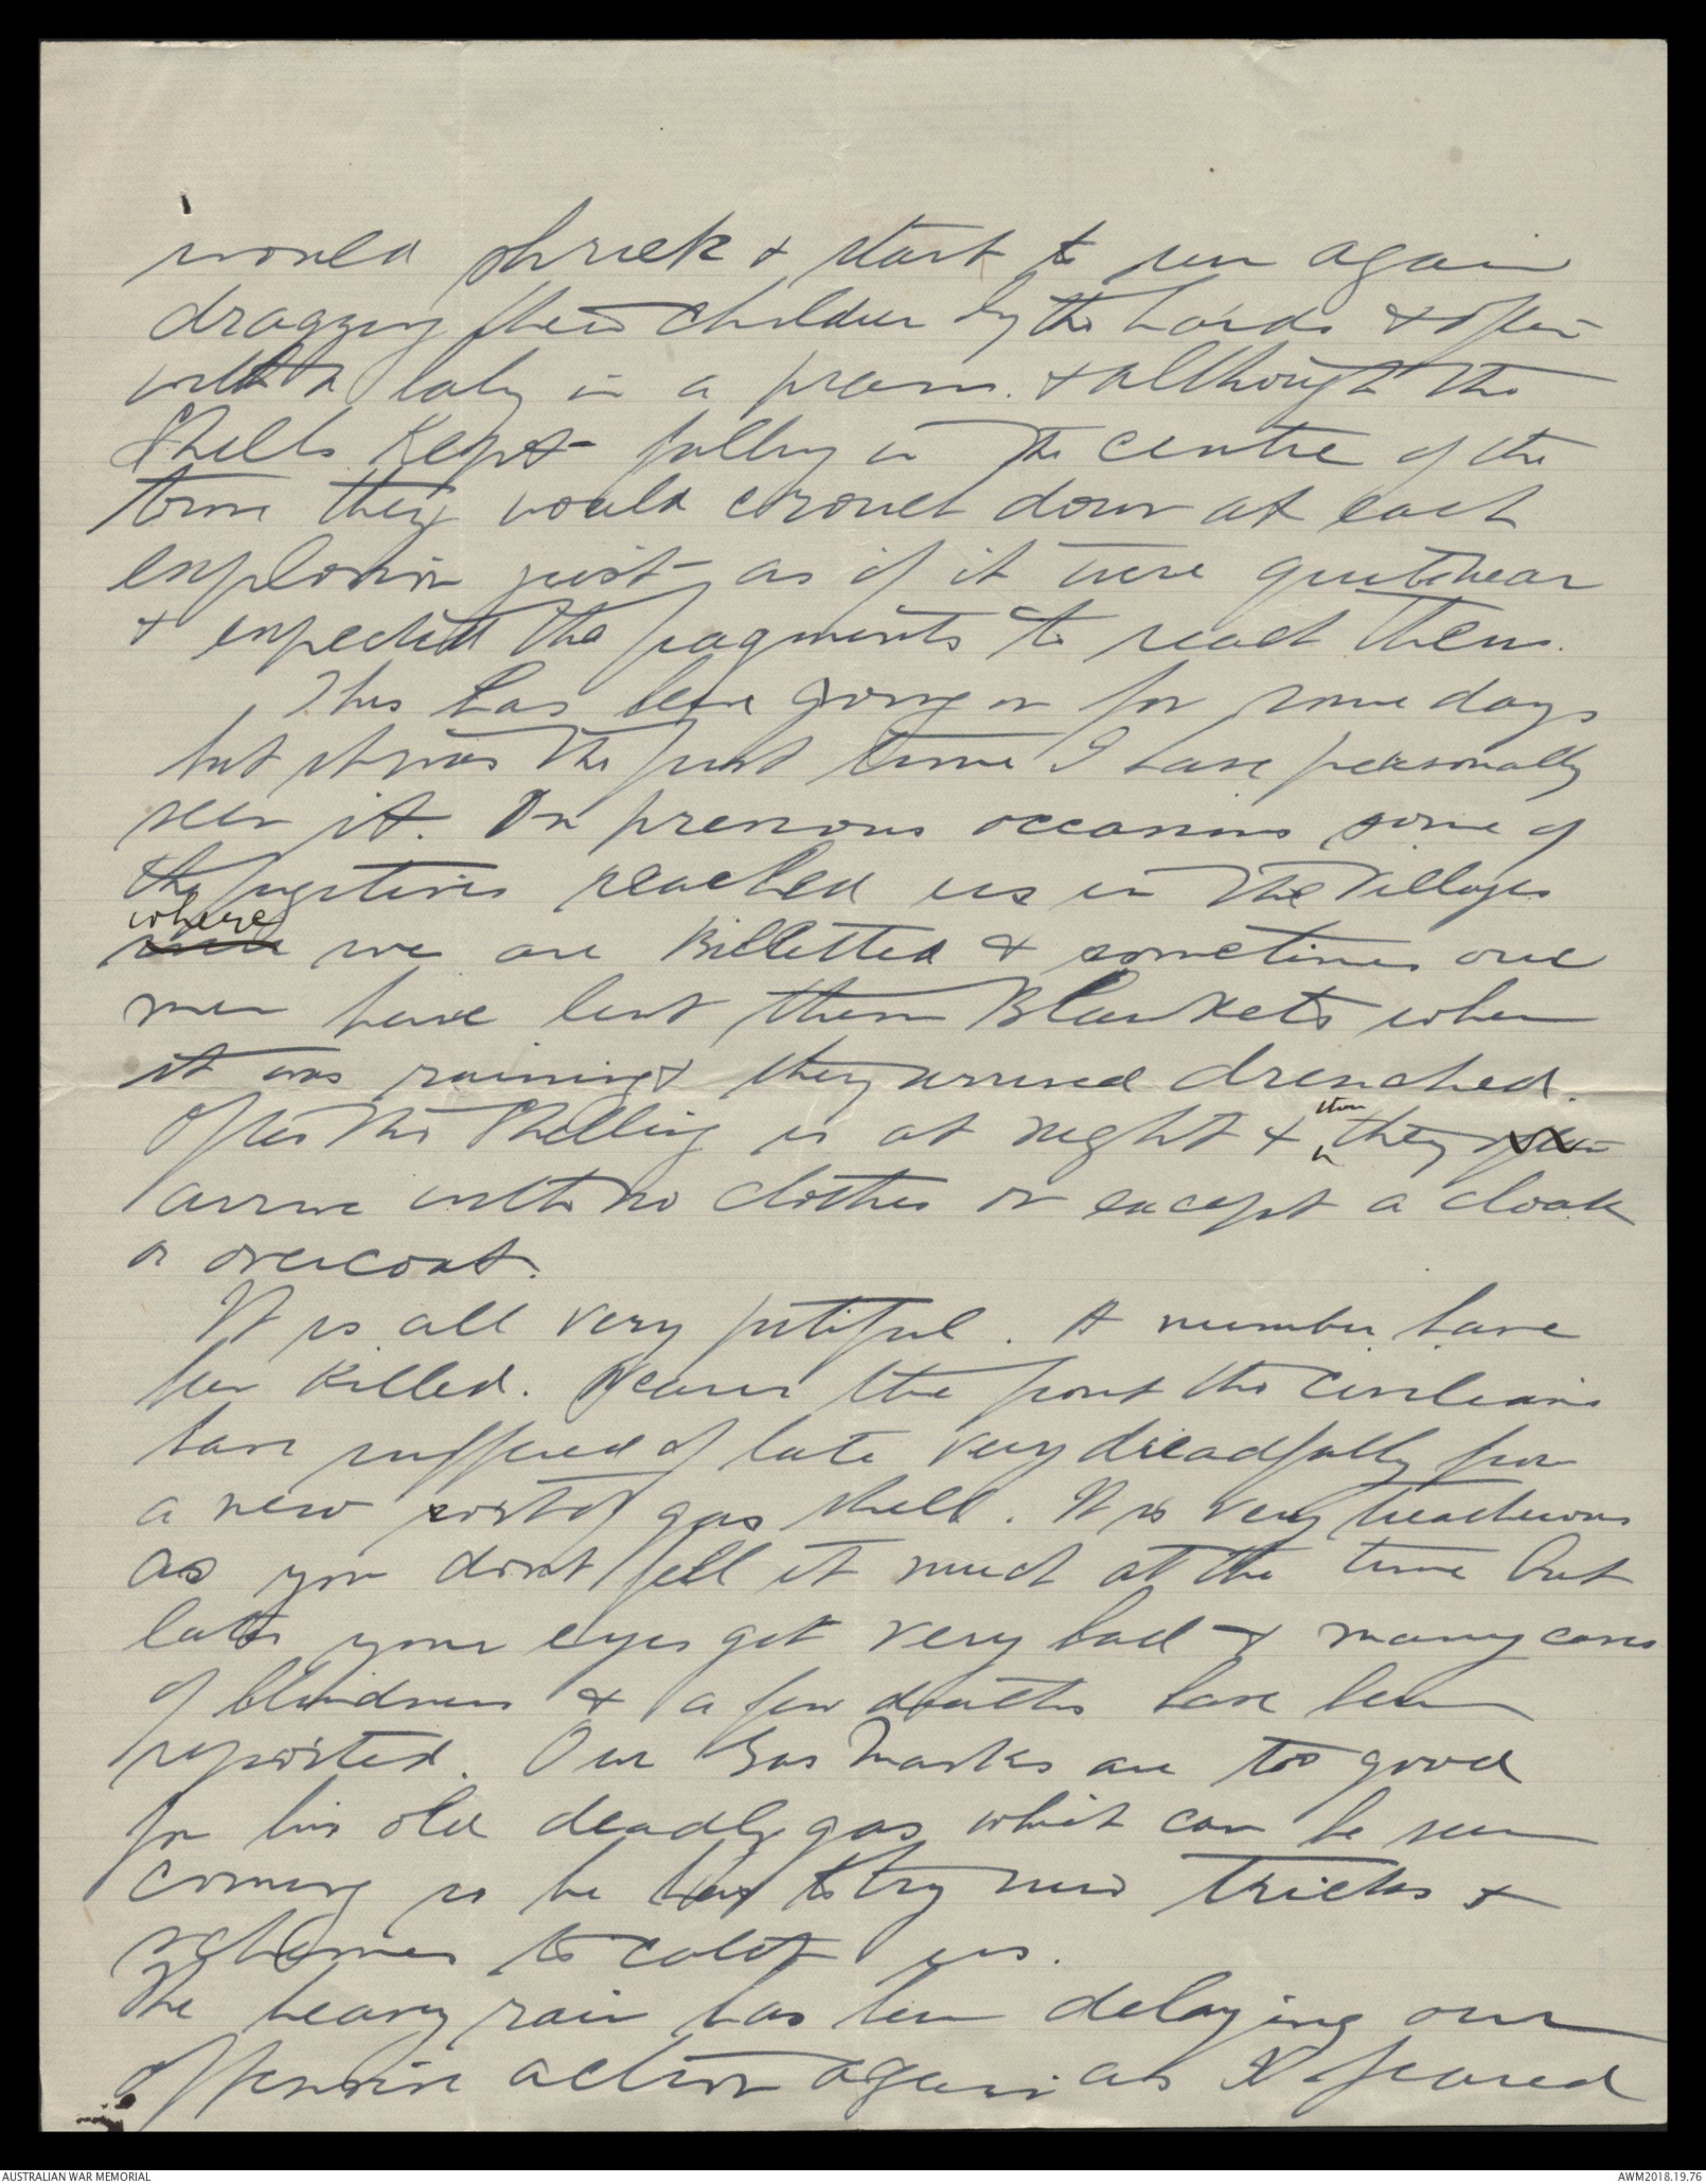 would shriek & start to run again
dragging their children by the hands & often
with a baby in a pram. & although the
Shells kept falling in the centre of the
town they would crouch down at each
explosion just as if it were quite near
& expected the fragments to reach them.
This has been going on for some days
but it was the first time I have personally
seen it. On previous occasions some of
the fugitives reached us in the Villages
where we are Billetted & sometimes our
men have lent them Blankets when
it was raining & they arrived drenched.
Often the Shelling is at night & then they
arrive with no clothes on except a cloak
or overcoat.
It is all very pitiful. A number have
been killed. Nearer the front the civilians
have suffered of late very dreadfully from
a new sort of gas shell. It is very treacherous
as you dont feel it much at the time but
later your eyes get very bad & many cases
of blindness & a few deaths have been
reported. Our Gas Masks are too good
for his old deadly gas which can be seen
coming so he has to try new tricks &
schemes to catch us.
The heavy rain has been delaying our
offensive action again as I feared
AUSTRALIAN WAR MEMORIAL
AWM2018.19.76